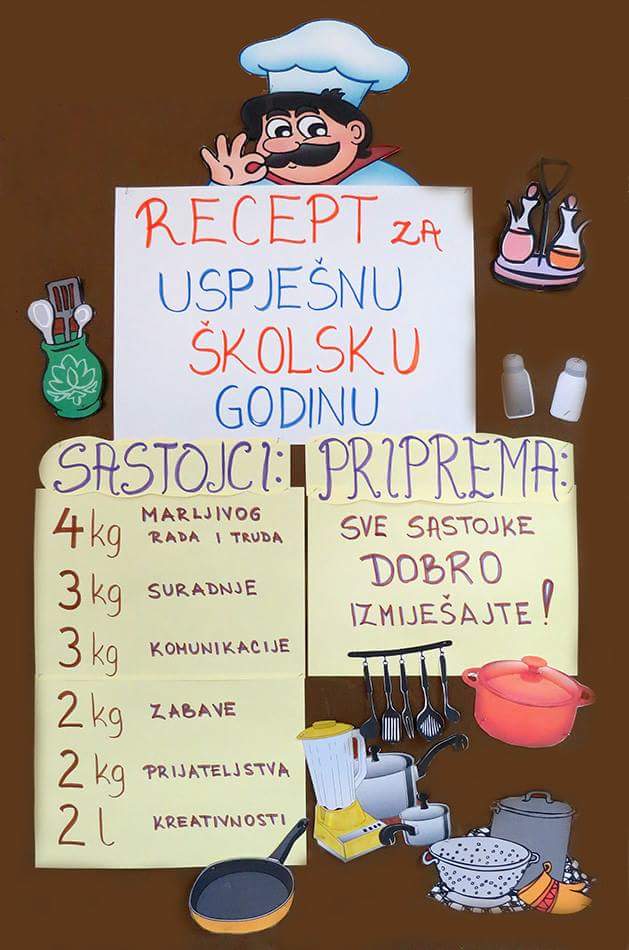 RECEPT ZA
USPJEŠNU
ŠKOLSKU
GODINU
SASTOJCI:
4 kg MARLJIVOG
RADA I TRUDA
3 kg SURADNJE
3 kg KOMUNIKACIJE
2 kg ZABAVE
2 kg PRIJATELJSTVA
2 l KREATIVNOSTI
PRIPREMA:
SVE SASTOJKE
DOBRO
IZMIJEŠAJTE!